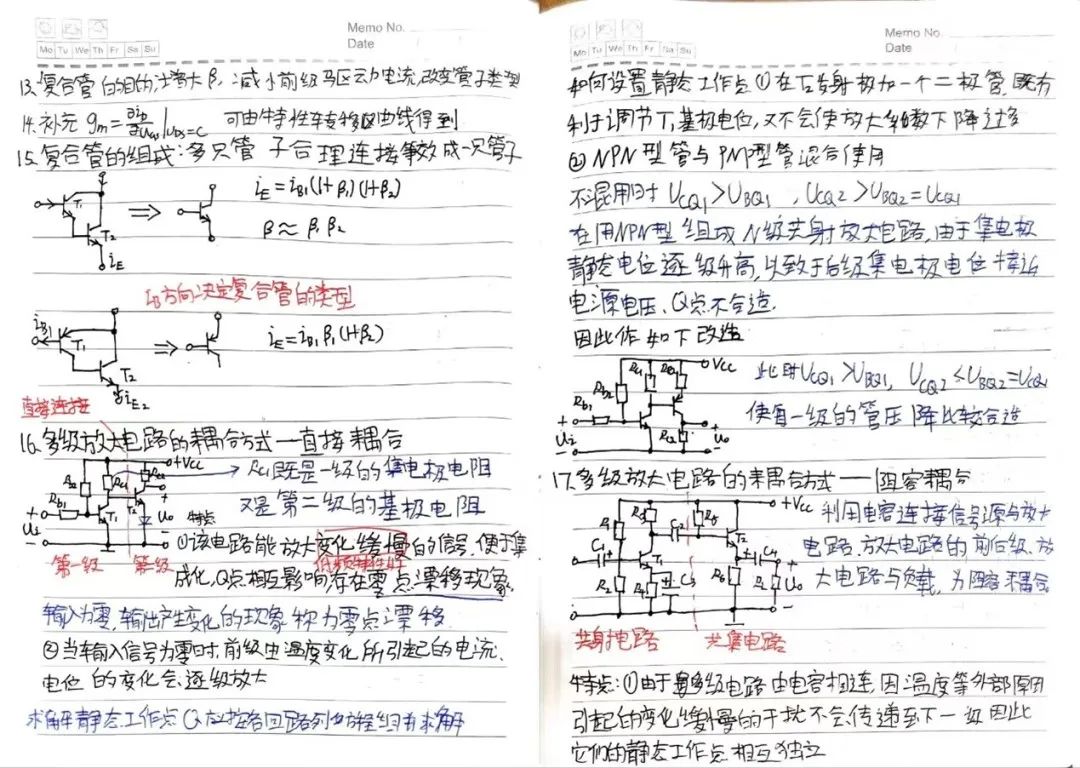 Memo No.
Mo Tu We Th Fr Sa Su
Date
13.复合管的目的:增大β,减小前级驱动电流,改变管子类型
14.补充 gm=∂iD/∂uGS|UDS=C 可由特性转移区曲线得到
15.复合管的组成:多只管子合理连接等效成一只管子
T1
T2
iE
iE=iB1(1+β1)(1+β2)
β≈β1β2
IB方向决定复合管的类型
iB1
T1
T2
iE2
iE=iB1β1(1+β2)
直接连接
16.多级放大电路的耦合方式—直接耦合
+Vcc
Rb2
Rc1
Rc2
Rb1
T1
T2
Ui
Uo
第一级
第二级
Rc1既是一级的集电极电阻
又是第二级的基极电阻
特点
①该电路能放大变化缓慢的信号,便于集
低频特性好
成化,Q点相互影响存在零点漂移现象
输入为零,输出产生变化的现象称为零点漂移
②当输入信号为零时,前级由温度变化所引起的电流、
电位的变化会逐级放大
求解静态工作点Q应按各回路列方程组并求解
Memo No.
Mo Tu We Th Fr Sa Su
Date
如何设置静态工作点①在T2发射极加一个二极管,既有
利于调节T1基极电位,又不会使放大倍数下降过多
②NPN型管与PNP型管混合使用
不混用时 UCQ1>UBQ1,UCQ2>UBQ2=UCQ1
在用NPN型组成N级共射放大电路,由于集电极
静态电位逐级升高,以致于后级集电极电位接近
电源电压,Q点不合适.
因此作如下改造
+Vcc
Rb2
Rc1
Rb1
Rc2
Ui
Uo
此时UCQ1>UBQ1,UCQ2<UBQ2=UCQ1
使每一级的管压降比较合适
17.多级放大电路的耦合方式——阻容耦合
+Vcc
R1
R3
C2
R5
T2
C1
T1
C4
R2
R4
C3
R6
Ui
Uo
利用电容连接信号源与放大
电路、放大电路的前后级、放
大电路与负载,为阻容耦合
共射电路
共集电路
特点:①由于多级电路由电容相连,因温度等外部原因
引起的变化缓慢的干扰不会传递至下一级因此
它们的静态工作点相互独立